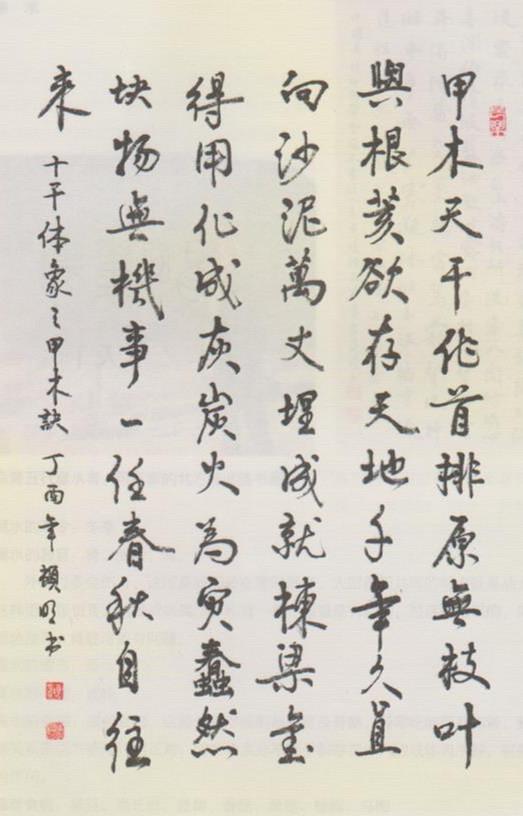 甲木天干作首排原無枝叶
與根荄欲存天地千年久直
向沙泥萬丈埋成就棟梁金
得用化成灰炭火為灾蠢然
块物與機事一任春秋自往
来
十干体象之甲木訣 丁酉年明书